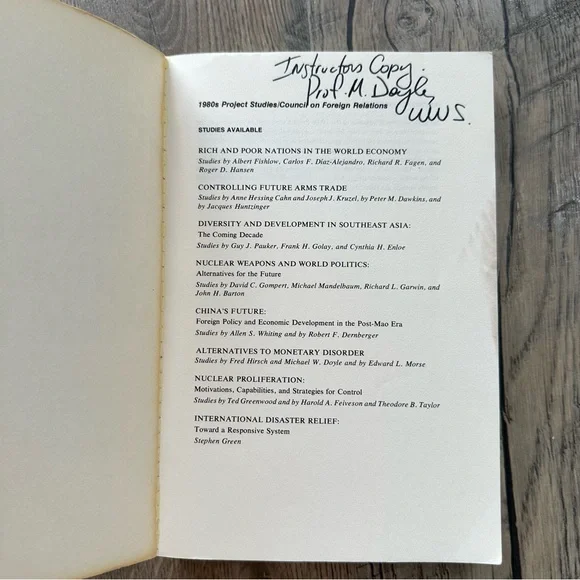 Instructors Copy.
Prof. M. Doyle,
WWS.
1980s Project Studies/Council on Foreign Relations
STUDIES AVAILABLE
RICH AND POOR NATIONS IN THE WORLD ECONOMY
Studies by Albert Fishlow, Carlos F. Díaz-Alejandro, Richard R. Fagen, and
Roger D. Hansen
CONTROLLING FUTURE ARMS TRADE
Studies by Anne Hessing Cahn and Joseph J. Kruzel, by Peter M. Dawkins, and
by Jacques Huntzinger
DIVERSITY AND DEVELOPMENT IN SOUTHEAST ASIA:
The Coming Decade
Studies by Guy J. Pauker, Frank H. Golay, and Cynthia H. Enloe
NUCLEAR WEAPONS AND WORLD POLITICS:
Alternatives for the Future
Studies by David C. Gompert, Michael Mandelbaum, Richard L. Garwin, and
John H. Barton
CHINA'S FUTURE:
Foreign Policy and Economic Development in the Post-Mao Era
Studies by Allen S. Whiting and by Robert F. Dernberger
ALTERNATIVES TO MONETARY DISORDER
Studies by Fred Hirsch and Michael W. Doyle and by Edward L. Morse
NUCLEAR PROLIFERATION:
Motivations, Capabilities, and Strategies for Control
Studies by Ted Greenwood and by Harold A. Feiveson and Theodore B. Taylor
INTERNATIONAL DISASTER RELIEF:
Toward a Responsive System
Stephen Green